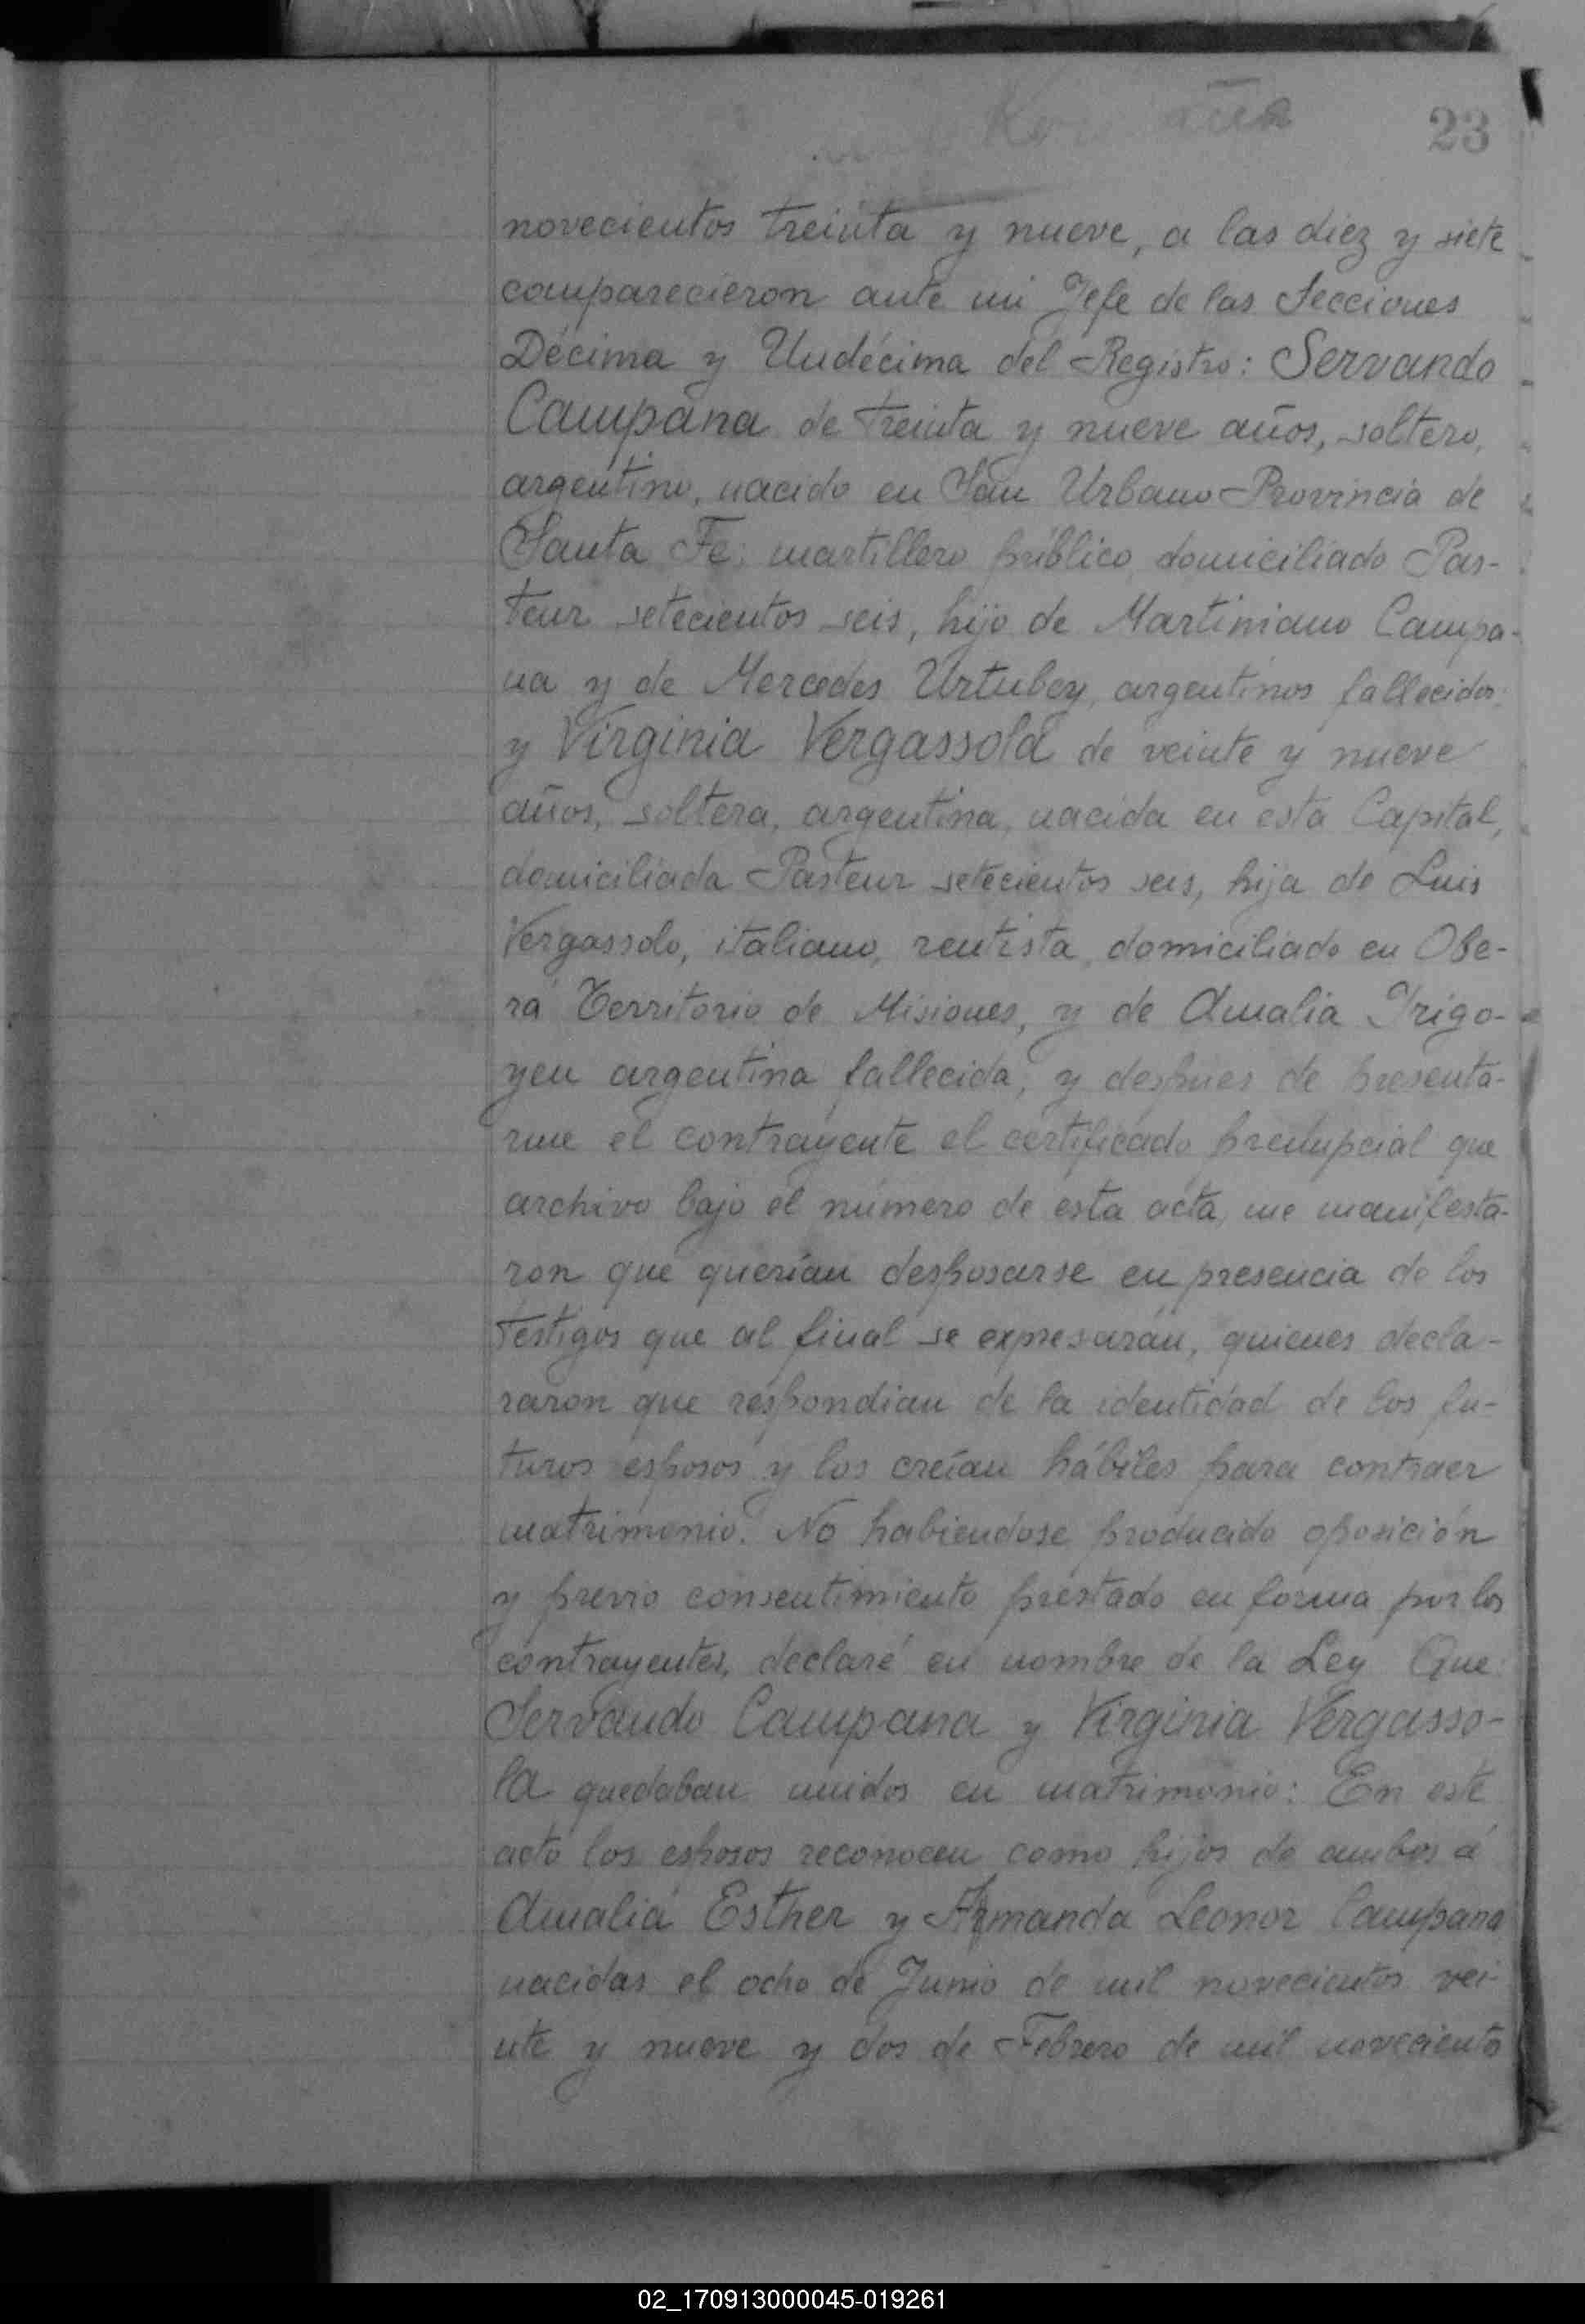 23
novecientos treinta y nueve, a las diez y siete
comparecieron ante mi Jefe de las Secciones
Décima y Undécima del Registro: Servando
Campana de treinta y nueve años, soltero,
argentino, nacido en San Urbano Provincia de
Santa Fe, martillero público, domiciliado Pas-
teur setecientos seis, hijo de Martiniano Campa-
na y de Mercedes Urtubey, argentinos fallecidos
y Virginia Vergassola de veinte y nueve
años, soltera, argentina, nacida en esta Capital,
domiciliada Pasteur setecientos seis, hija de Luis
Vergassolo, italiano, rentista, domiciliado en Obe-
rá Territorio de Misiones, y de Amalia Irigo-
yen argentina fallecida, y despues de presenta-
rme el contrayente el certificado prenupcial que
archivo bajo el número de esta acta, me manifesta-
ron que querían desposarse en presencia de los
testigos que al final se expresarán, quienes decla-
raron que respondian de la identidad de los fu-
turos esposos y los creían hábiles para contraer
matrimonio. No habiendose producido oposición
y previo consentimiento prestado en forma por los
contrayentes, declaré en nombre de la Ley Que
Servando Campana y Virginia Vergasso-
la quedaban unidos en matrimonio: En este
acto los esposos reconocen como hijos de ambos á
Amalia Esther y Armanda Leonor Campana
nacidas el ocho de Junio de mil novecientos vei-
nte y nueve y dos de Febrero de mil novecientos
02_170913000045-019261